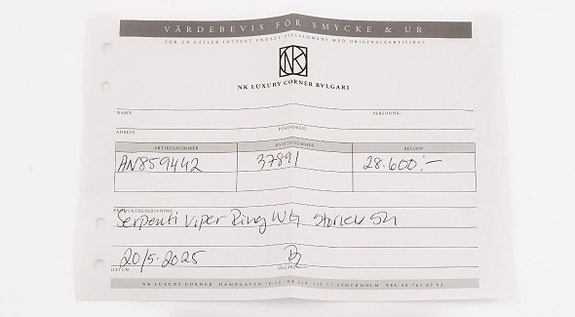 VÄRDEBEVIS FÖR SMYCKE & UR
FÖR UR GÄLLER INTYGET ENDAST TILLSAMMANS MED ORIGINALCERTIFIKAT
NK
NK LUXURY CORNER BVLGARI
NAMN PERSONNR.
ADRESS POSTADRESS
ARTIKELNUMMER KVITTONUMMER BELOPP
AN859442 37891 28.600:-
PRODUKTBESKRIVNING
Serpenti Viper Ring WG Storlek 54
20/5-2025
DATUM SÄLJARE
NK LUXURY CORNER HAMNGATAN 18-20 STOCKHOLM TEL 08-762